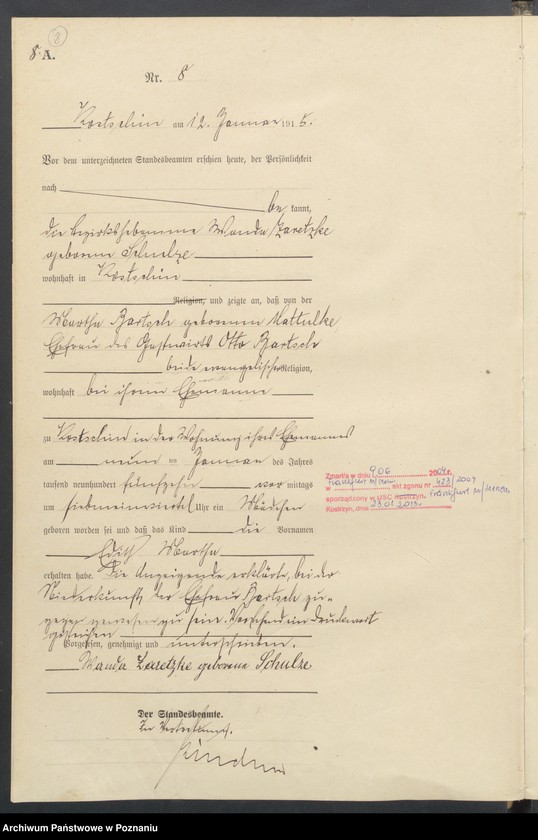 8 A.
8
Nr. 8
Kostschin am 12. Januar 1915.
Vor dem unterzeichneten Standesbeamten erschien heute, der Persönlichkeit
nach
be kannt,
die Bezirkshebamme Wanda Zaretzke
geborene Schulze
wohnhaft in Kostschin
Religion, und zeigte an, daß von der
Martha Bartsch geborenen Mattulke
Ehefrau des Gastwirts Otto Bartsch
beide evangelischer Religion,
wohnhaft bei ihrem Ehemanne
zu Kostschin in der Wohnung ihres Ehemannes
am neun ten Januar des Jahres
tausend neunhundert fünfzehn vor mittags
um siebeneinviertel Uhr ein Mädchen
geboren worden sei und daß das Kind die Vornamen
Edith Martha
erhalten habe. Die Anzeigende erklärte, bei der
Niederkunft der Ehefrau Bartsch zu-
gegen gewesen zu sein. Vorstehend ein Druckwort
gestrichen
Vorgelesen, genehmigt und unterschrieben.
Wanda Zaretzke geborene Schulze
Der Standesbeamte.
In Vertretung.
Zmarł/a w dniu 9.06. 2004 r.
w Frankfurt n/Odrą akt zgonu nr 423/2004
sporządzony w USC Kostrzyn, Frankfurt n/Menem
Kostrzyn, dnia
Archiwum Państwowe w Poznaniu